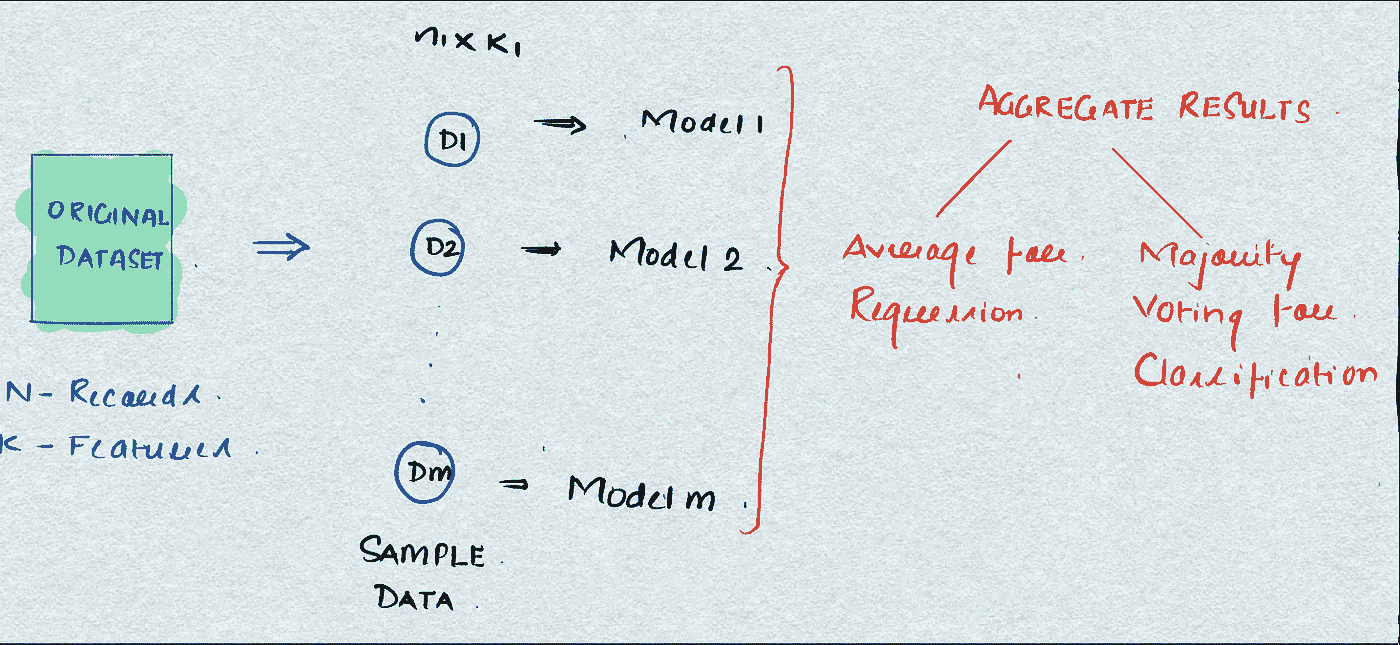 n1 x K1
ORIGINAL
DATASET
N - Records
K - Features
D1
Model 1
D2
Model 2
Dm
Model m
SAMPLE
DATA
AGGREGATE RESULTS
Average for
Regression
Majority
Voting for
Classification